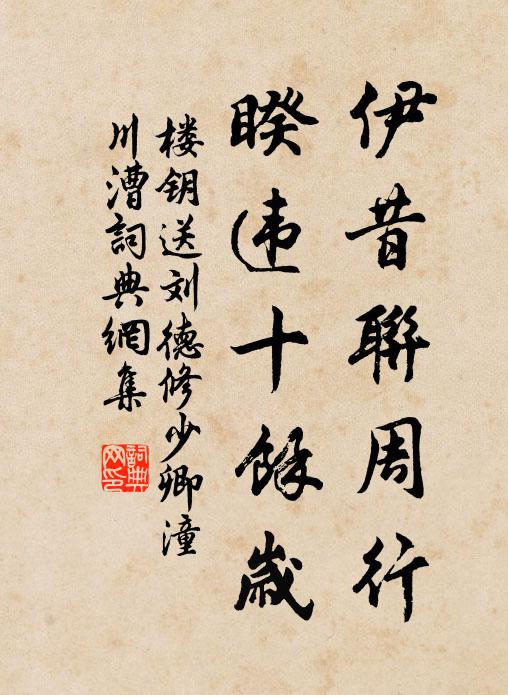 伊昔聯周行
睽违十餘歲
楼钥送刘德修少卿潼
川漕詞典網集
詞典网印